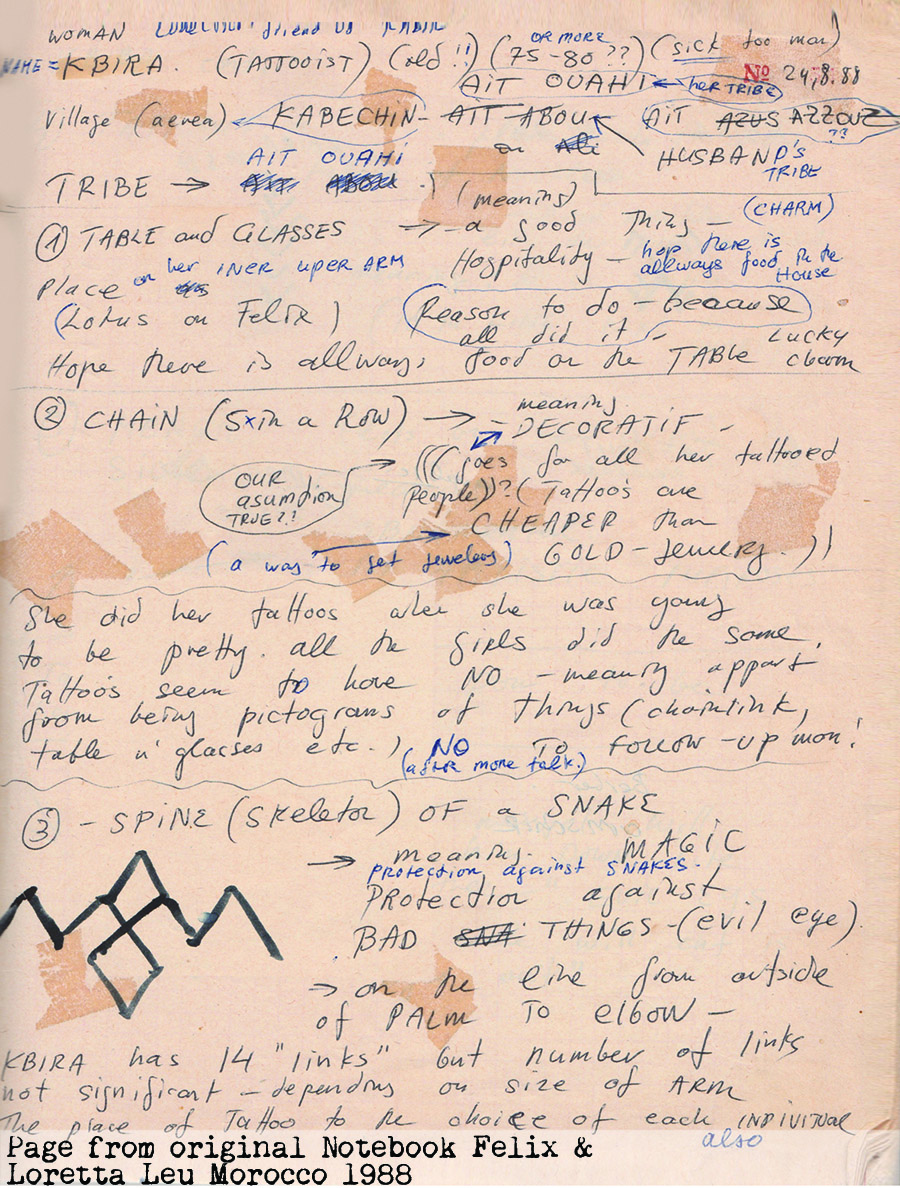 WOMAN friend of KABIR
NAME = KBIRA. (TATTOOIST) (old !!) (75-80 ??) (sick too man)
OR MORE
No 24,8.88
AiT OUAHI ← her TRIBE
Village (aerea) ← KABECHIN - AIT ABOU AiT AZUS AZZOUZ
??
or Ali
HUSBAND'S
TRIBE
AIT OUAHi
TRIBE →
(meaning)
① TABLE and GLASSES → - a good Thing - (CHARM)
Hospitality - hop there is
allways food in the
House
Place on her iNER UPER ARM
(Lotus on Felix)
(Reason to do - because
all did it -
Hope there is allways food on the TABLE Lucky
charm
② CHAiN (5x in a Row) → meaning
- DECORATiF -
(((goes for all her tattooed
people))?(Tattoo's are
CHEAPER than
GOLD - Jewlery.))
OUR
asumtion
TRUE??
(a way to get jewelery)
She did her tattoos when she was young
to be pretty. all the girls did the same.
Tattoo's seem to have NO - meaning appart
from being pictograms of things (chainlink,
table n' glasses etc.) NO TO FOLLOW-UP mon!
(after more talk.)
③ - SPiNE (SKeletor) OF a SNAKE
→ meaning. MAGiC
PROTECTiON against SNAKES.
PRotection against
BAD SNA THiNGS - (evil eye).
→ on the line from outside
of PALM To elbow -
KBIRA has 14 "links" but number of links
not significant - depending on size of ARM
The place of Tattoo to the choice of each iNDiViTUAL
also
Page from original Notebook Felix &
Loretta Leu Morocco 1988